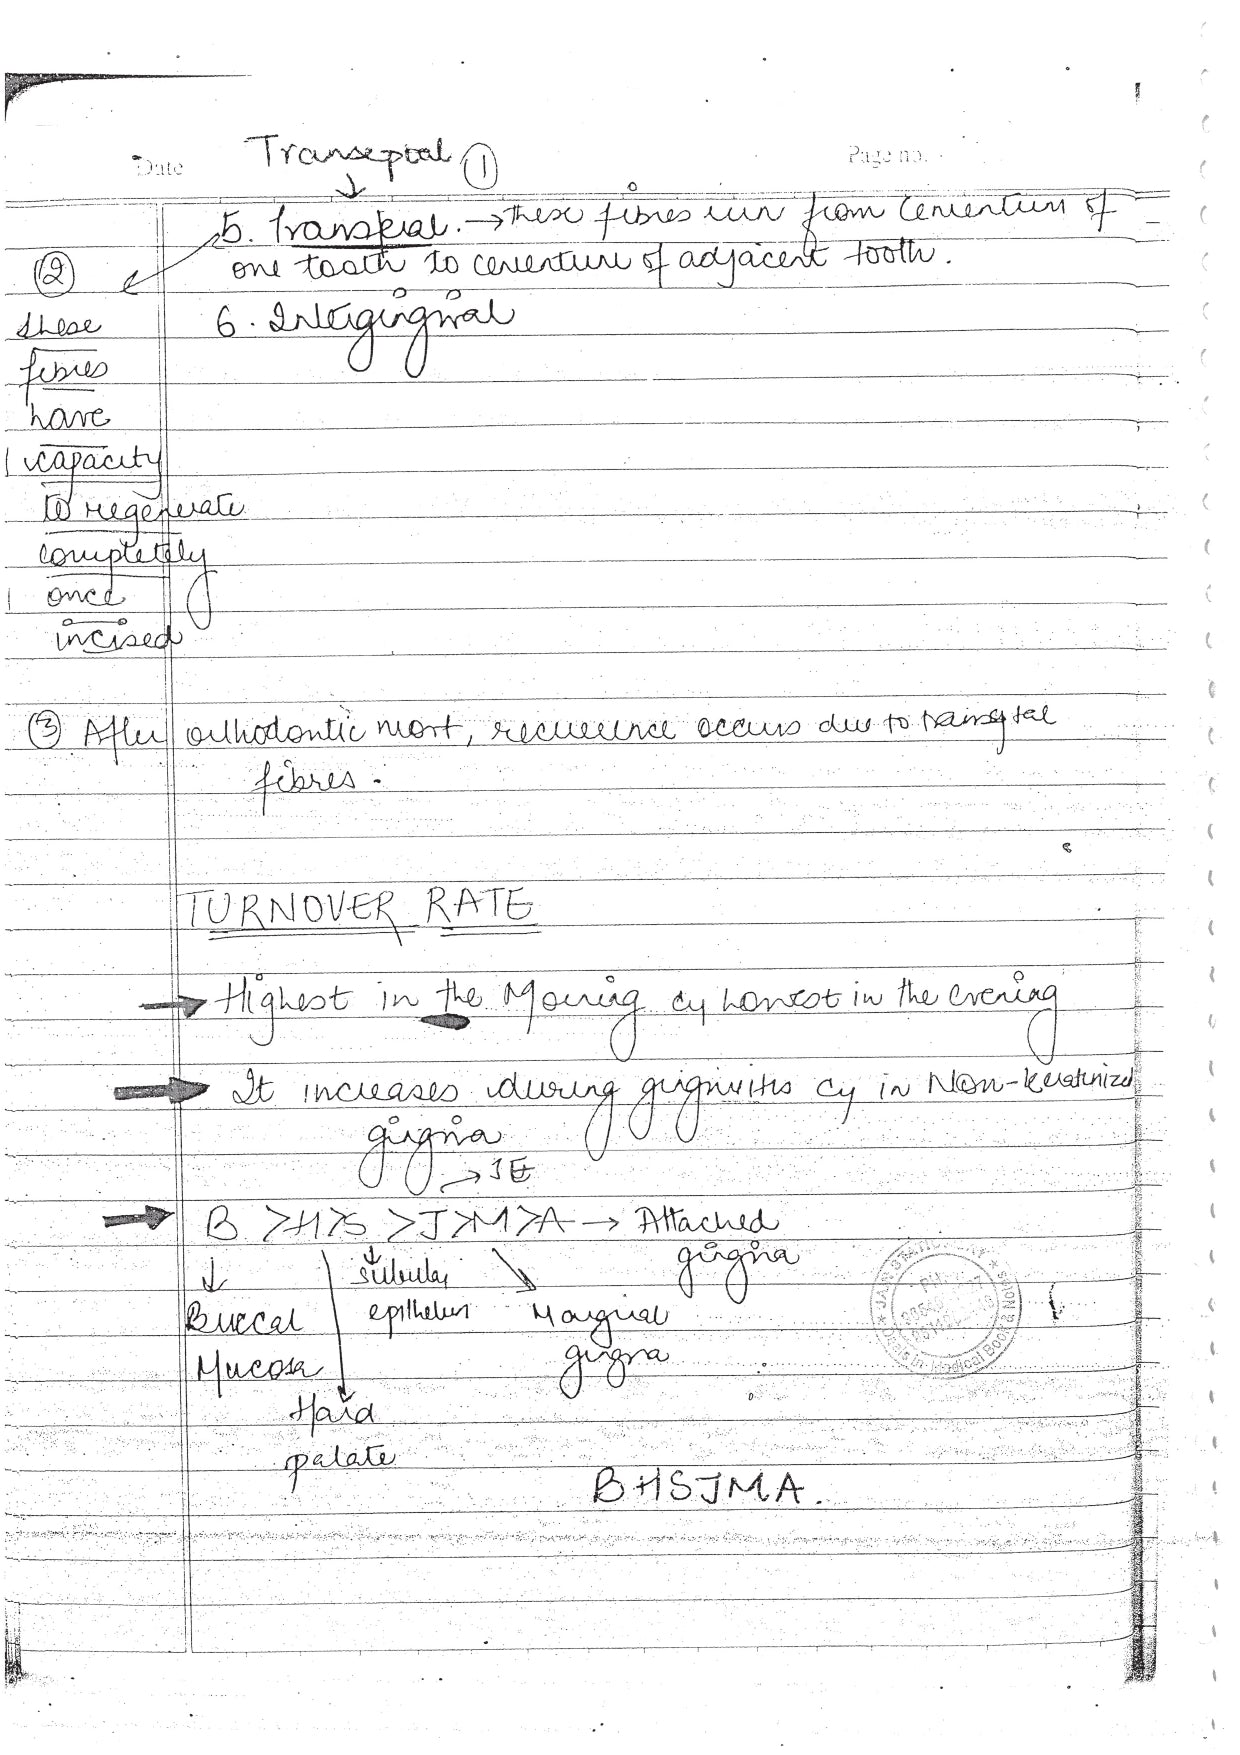 Date
Page no.
Transeptal ①
↓
5. Transpial. → These fibres run from cementum of
one tooth to cementum of adjacent tooth.
②
these
fibres
have
capacity
to regenerate
completely
once
incised
6. Intergingival
③ After orthodontic
recurrence occurs due to
fibres.
TURNOVER RATE
→ Highest in the Morning cy lowest in the evening
→ It increases during gingivitis cy in Non-keratinized
gingiva
→ JE
→ B > H > S > J > M > A → Attached
gingiva
↓ ↓ sulcular
epithelium
Buccal
Mucosa
Marginal
gingiva
Hard
palate
BHSJMA.